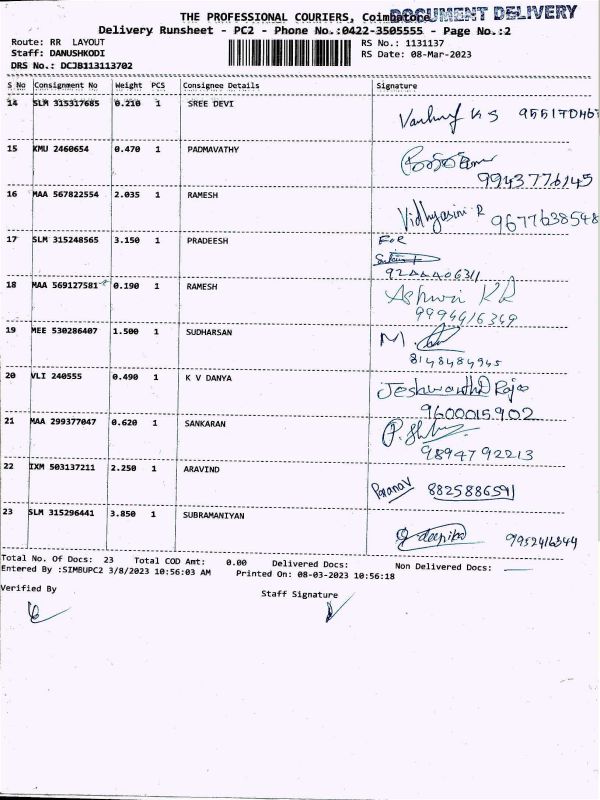 THE PROFESSIONAL COURIERS, Coimbatore
DOCUMENT DELIVERY
Delivery Runsheet - PC2 - Phone No.:0422-3505555 - Page No.:2
Route: RR LAYOUT RS No.: 1131137
Staff: DANUSHKODI RS Date: 08-Mar-2023
DRS No.: DCJB113113702
S No Consignment No Weight PCS Consignee Details Signature
14 SLM 315317685 0.210 1 SREE DEVI
15 KMU 2460654 0.470 1 PADMAVATHY
9943776145
16 MAA 567822554 2.035 1 RAMESH
Vidhyasini R 9677638548
17 SLM 315248565 3.150 1 PRADEESH
FOR
18 MAA 569127581 0.190 1 RAMESH
Ashwin KR
9994616349
19 MEE 530286407 1.500 1 SUDHARSAN
M.
8148484945
20 VLI 240555 0.490 1 K V DANYA
Jeshwanth D Rajoo
9600015902
21 MAA 299377047 0.620 1 SANKARAN
9894792213
22 IXM 503137211 2.250 1 ARAVIND
Paranav 8825886591
23 SLM 315296441 3.850 1 SUBRAMANIYAN
deepika 9952416344
Total No. Of Docs: 23 Total COD Amt: 0.00 Delivered Docs: Non Delivered Docs:
Entered By :SIMBUPC2 3/8/2023 10:56:03 AM Printed On: 08-03-2023 10:56:18
Verified By Staff Signature